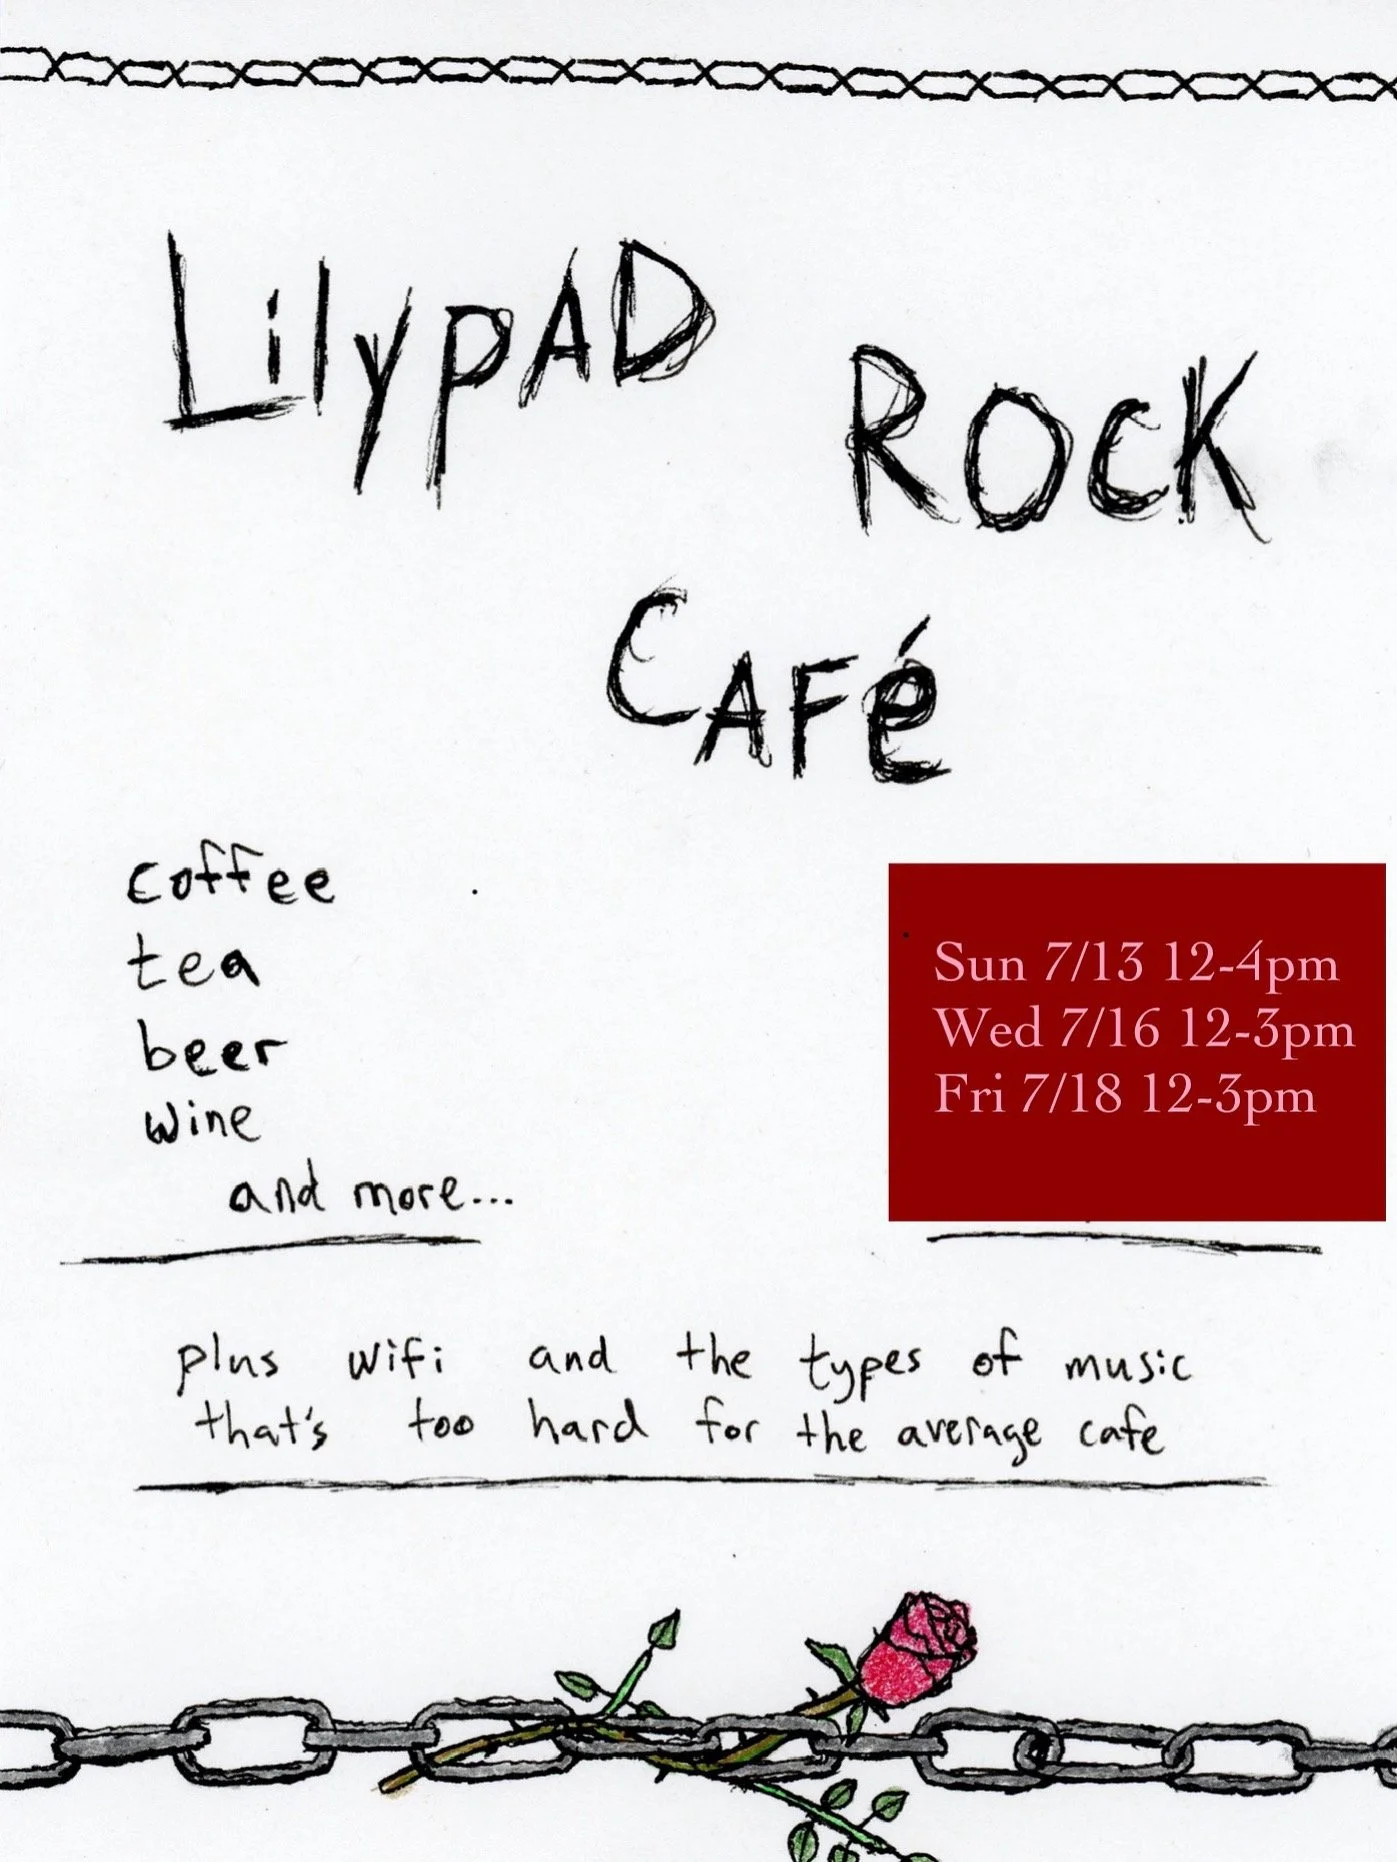 LilypAD
ROCK
CAFé
coffee
tea
beer
wine
and more...
Sun 7/13 12-4pm
Wed 7/16 12-3pm
Fri 7/18 12-3pm
plus wifi and the types of music
that's too hard for the average cafe